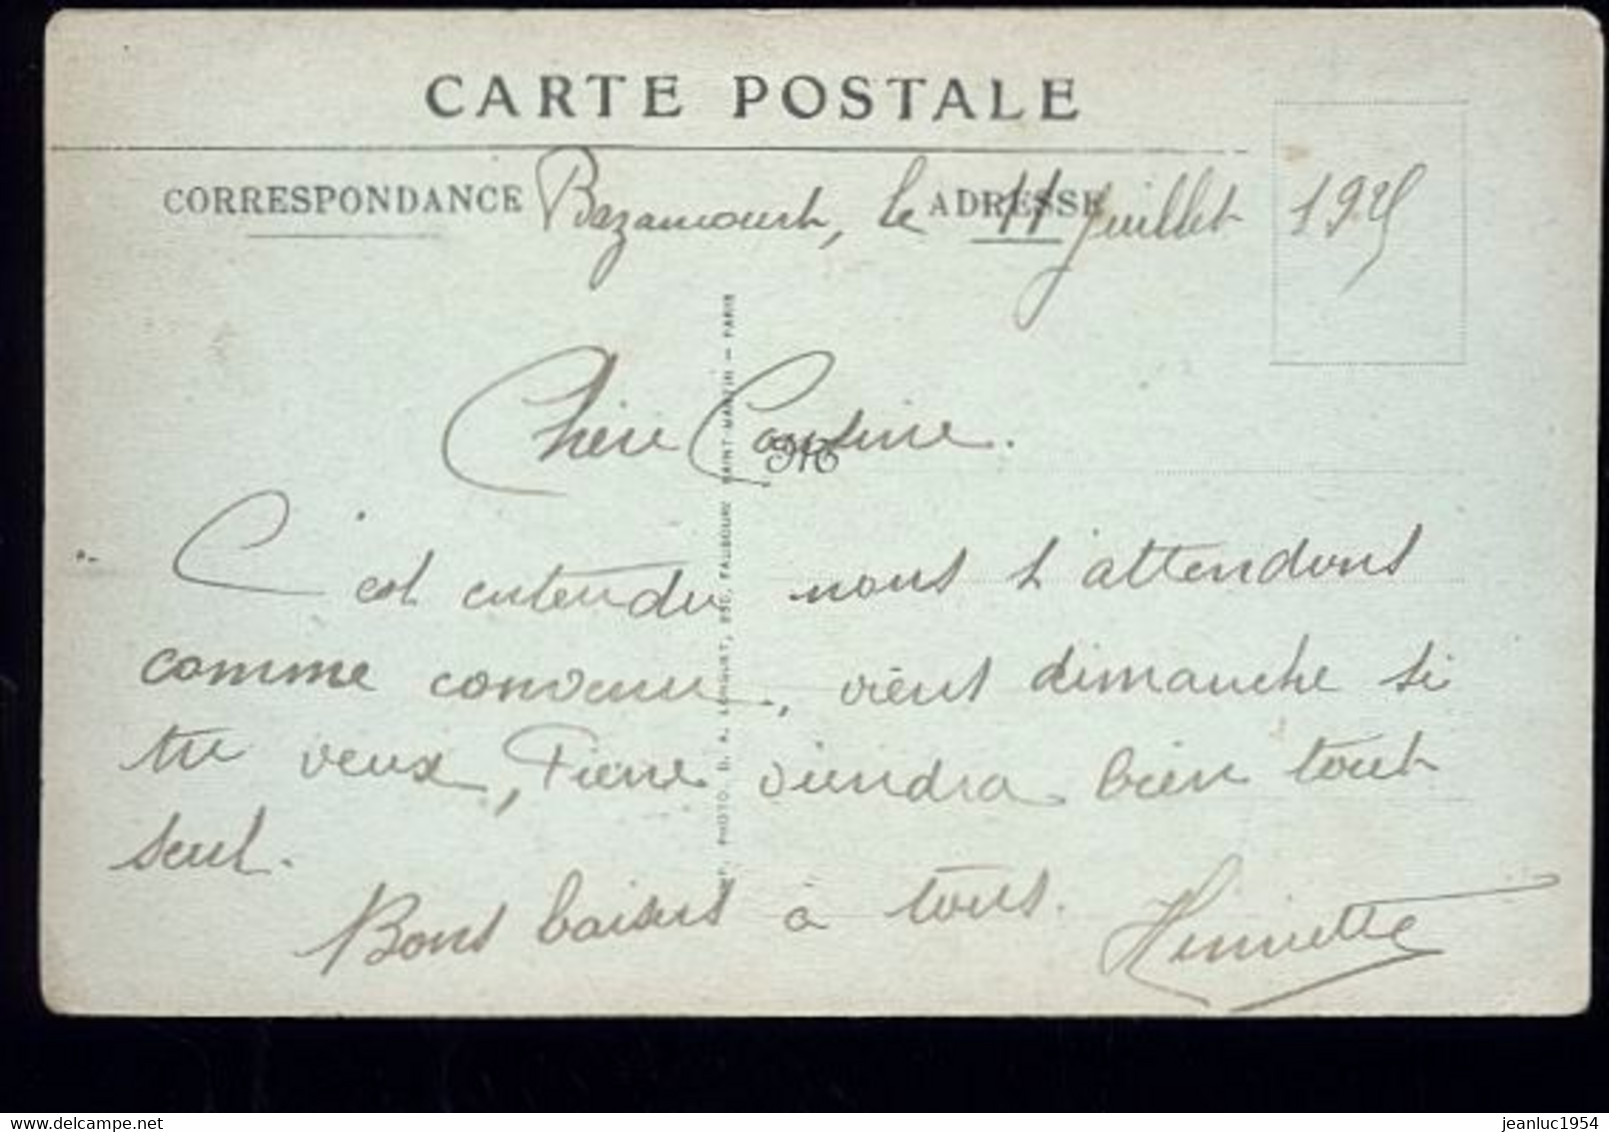 CARTE POSTALE
CORRESPONDANCE
ADRESSE
Bazancourt, le 11 juillet 1925
Chère Cousine.
C'est entendu nous t'attendons
comme convenu, viens dimanche si
tu veux, Pierre viendra bien tout
seul.
Bons baisers à tous. Henriette
PHOTO. D. A. LONGUET, 250, FAUBOURG SAINT-MARTIN — PARIS
jeanluc1954